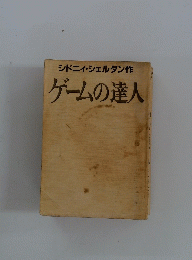 シドニィ・シェルダン作
ゲームの達人